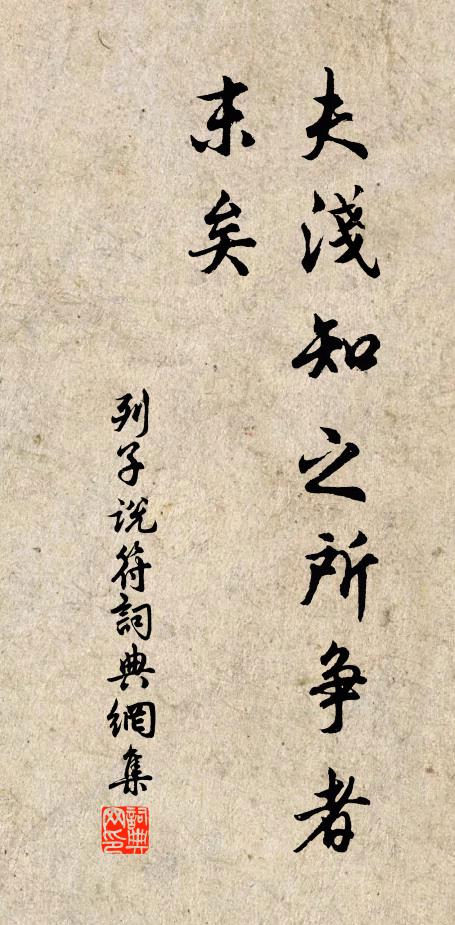 夫淺知之所争者
末矣
列子说符詞典網集
詞典
网印